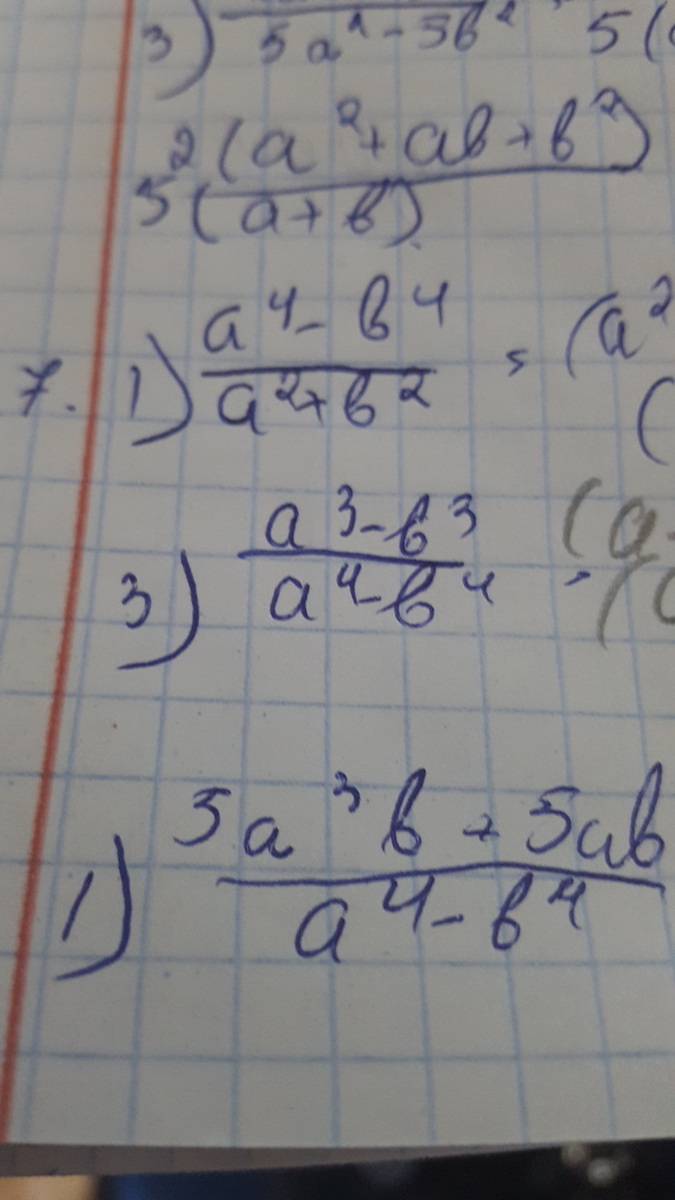 3) 5a² - 5b² 5(
2(a² + ab + b²)
5(a + b)
7. 1) a⁴ - b⁴ = (a²
a² + b² (
3) a³ - b³ (a -
a⁴ - b⁴ = (
1) 5a³b + 5ab
a⁴ - b⁴